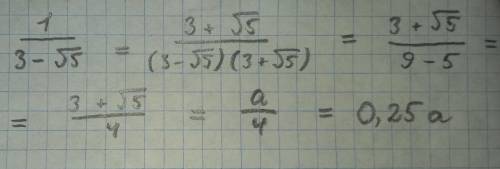 1/(3 - √5) = (3 + √5)/((3-√5)(3+√5)) = (3 + √5)/(9 - 5) =
= (3 + √5)/4 = a/4 = 0,25a